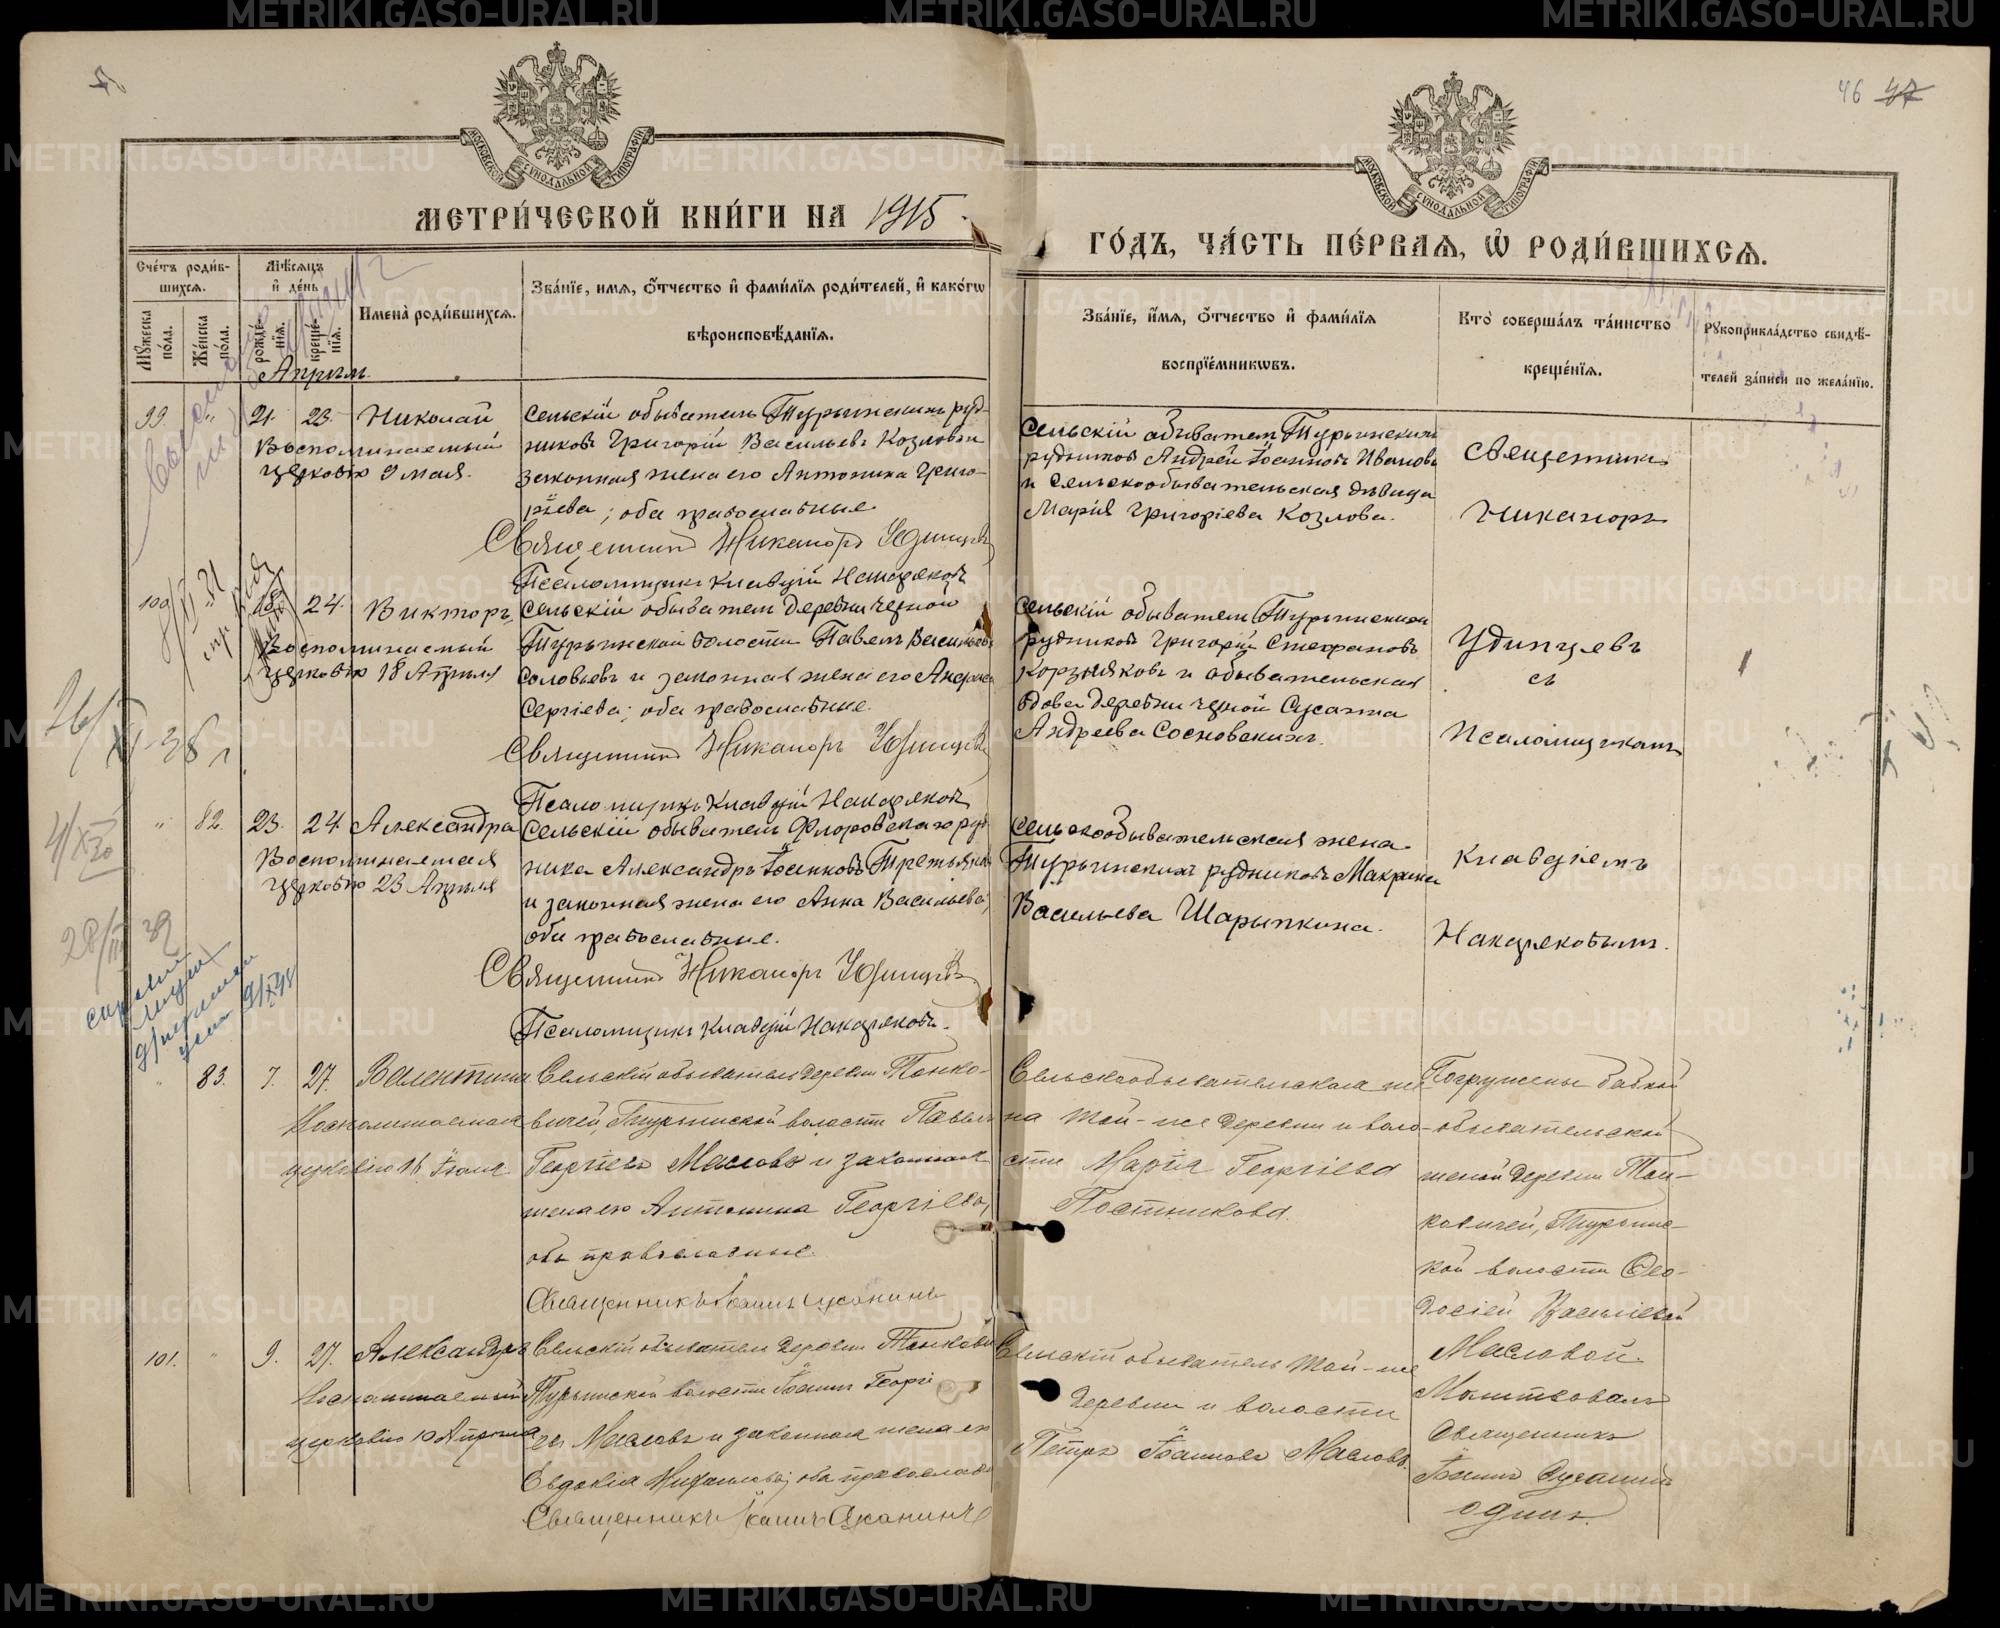 46 47
МЕТРИ́ЧЕСКОЙ КНИ́ГИ НА 1915
ГО́ДЪ, ЧА́СТЬ ПЕ́РВАЯ, Ѡ РОДИ́ВШИХСЯ.
МОСКОВСКОЙ СѴНОДАЛЬНОЙ ТИПОГРАФІИ
МОСКОВСКОЙ СѴНОДАЛЬНОЙ ТИПОГРАФІИ
Сче́тъ роди́в-
шихся.
Мѣ́сяцъ
и҆ де́нь
Мꙋ́жеска по́ла.
Же́нска по́ла.
рожде́-
нїя.
креще́-
нїя.
И҆мена̀ роди́вшихся.
Зва́нїе, имя, ѻ҆́тчество и҆ фами́лїя роди́телей, и҆ како́гѡ
вѣроисповѣ́данїя.
Зва́нїе, и҆́мя, ѻ҆́тчество и҆ фами́лїя
воспрїе́мникѡвъ.
Кто̀ соверша́лъ та́инство
креще́нїя.
Рꙋкоприкла́дство свидѣ́-
телей за́писи по жела́нїю.
Апрѣль.
99. " 21. 23. Николай
Воспоминаемый
церковію 9 мая.
Сельскій обыватель Турьинскихъ руд-
никовъ Григорій Васильевъ Козловъ и
законная жена его Антонина Григо-
рьева; оба православные.
Священникъ Никаноръ Удинцевъ
Псаломщикъ Клавдій Накаряковъ
Сельскій обыватель Турьинскихъ
рудниковъ Андрей Іоанновъ Ивановъ
и сельскообывательская дѣвица
Марія Григоріева Козлова.
Священникъ
Никаноръ
100. " 18. 24. Викторъ,
Воспоминаемый
церковію 18 Апрѣля
Сельскій обыватель деревни Черной
Турьинской волости Павелъ Васильевъ
Соловьевъ и законная жена его
Сергіева; оба православные.
Священникъ Никаноръ Удинцевъ
Псаломщикъ Клавдій Накаряковъ
Сельскій обыватель Турьинскихъ
рудниковъ Григорій Стефановъ
Корзняковъ и обывательская
вдова деревни Черной Сусанна
Андреева Сосновскихъ.
Удинцевъ
съ
Псаломщикомъ
" 82. 23. 24. Александра
Воспоминаемая
церковію 23 Апрѣля
Сельскій обыватель Фроловскаго руд-
ника Александръ Іоанновъ Третьяковъ
и законная жена его Анна Васильева,
оба православные.
Священникъ Никаноръ Удинцевъ
Псаломщикъ Клавдій Накаряковъ.
Сельскообывательская жена
Турьинскихъ рудниковъ Макрина
Васильева Шарыпкина.
Клавдіемъ
Накаряковымъ.
" 83. 7. 27. Валентина
Воспоминаемая
церковію 16 Іюля.
Сельскій обыватель деревни Тонко-
вичей, Турьинской волости Павелъ
Георгіевъ Масловъ и законная
жена его Антонина Георгіева,
оба православные.
Священникъ Іоаннъ Сусанинъ
Сельскообывательская же-
на той-же деревни и воло-
сти Марія Георгіева
Постникова.
Погружены бабкой
обывательской
женой деревни Тон-
ковичей, Турьинс-
кой волости Ѳео-
досіей Васильевой
Масловой.
101. " 9. 27. Александръ
Воспоминаемый
церковію 10 Апрѣля
Сельскій обыватель деревни Тонковичей
Турьинской волости Іоаннъ Георгі-
евъ Масловъ и законная жена его
Евдокія; оба православн.
Священникъ Іоаннъ Сусанинъ
Сельскій обыватель той-же
деревни и волости
Петръ Іоанновъ Масловъ.
Молитвовалъ
Священникъ
Іоаннъ Сусанинъ
одинъ.